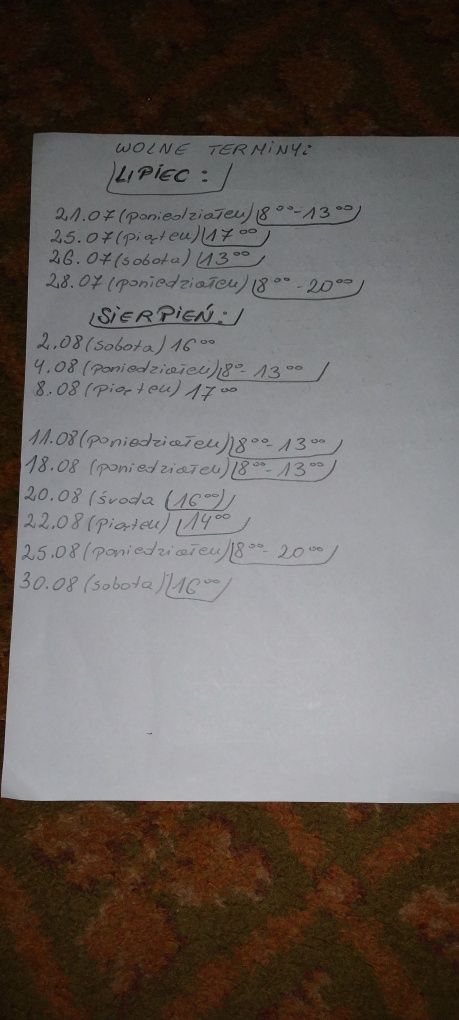 WOLNE TERMINY:
LIPIEC:
21.07 (poniedziałek) 8⁰⁰-13⁰⁰
25.07 (piątek) 17⁰⁰
26.07 (sobota) 13⁰⁰
28.07 (poniedziałek) 8⁰⁰-20⁰⁰
SIERPIEŃ:
2.08 (sobota) 16⁰⁰
4.08 (poniedziałek) 8⁰-13⁰⁰
8.08 (piątek) 17⁰⁰
11.08 (poniedziałek) 8⁰⁰-13⁰⁰
18.08 (poniedziałek) 8⁰⁰-13⁰⁰
20.08 (środa (16⁰⁰)
22.08 (piątek) 14⁰⁰
25.08 (poniedziałek) 8⁰⁰-20⁰⁰
30.08 (sobota) 16⁰⁰